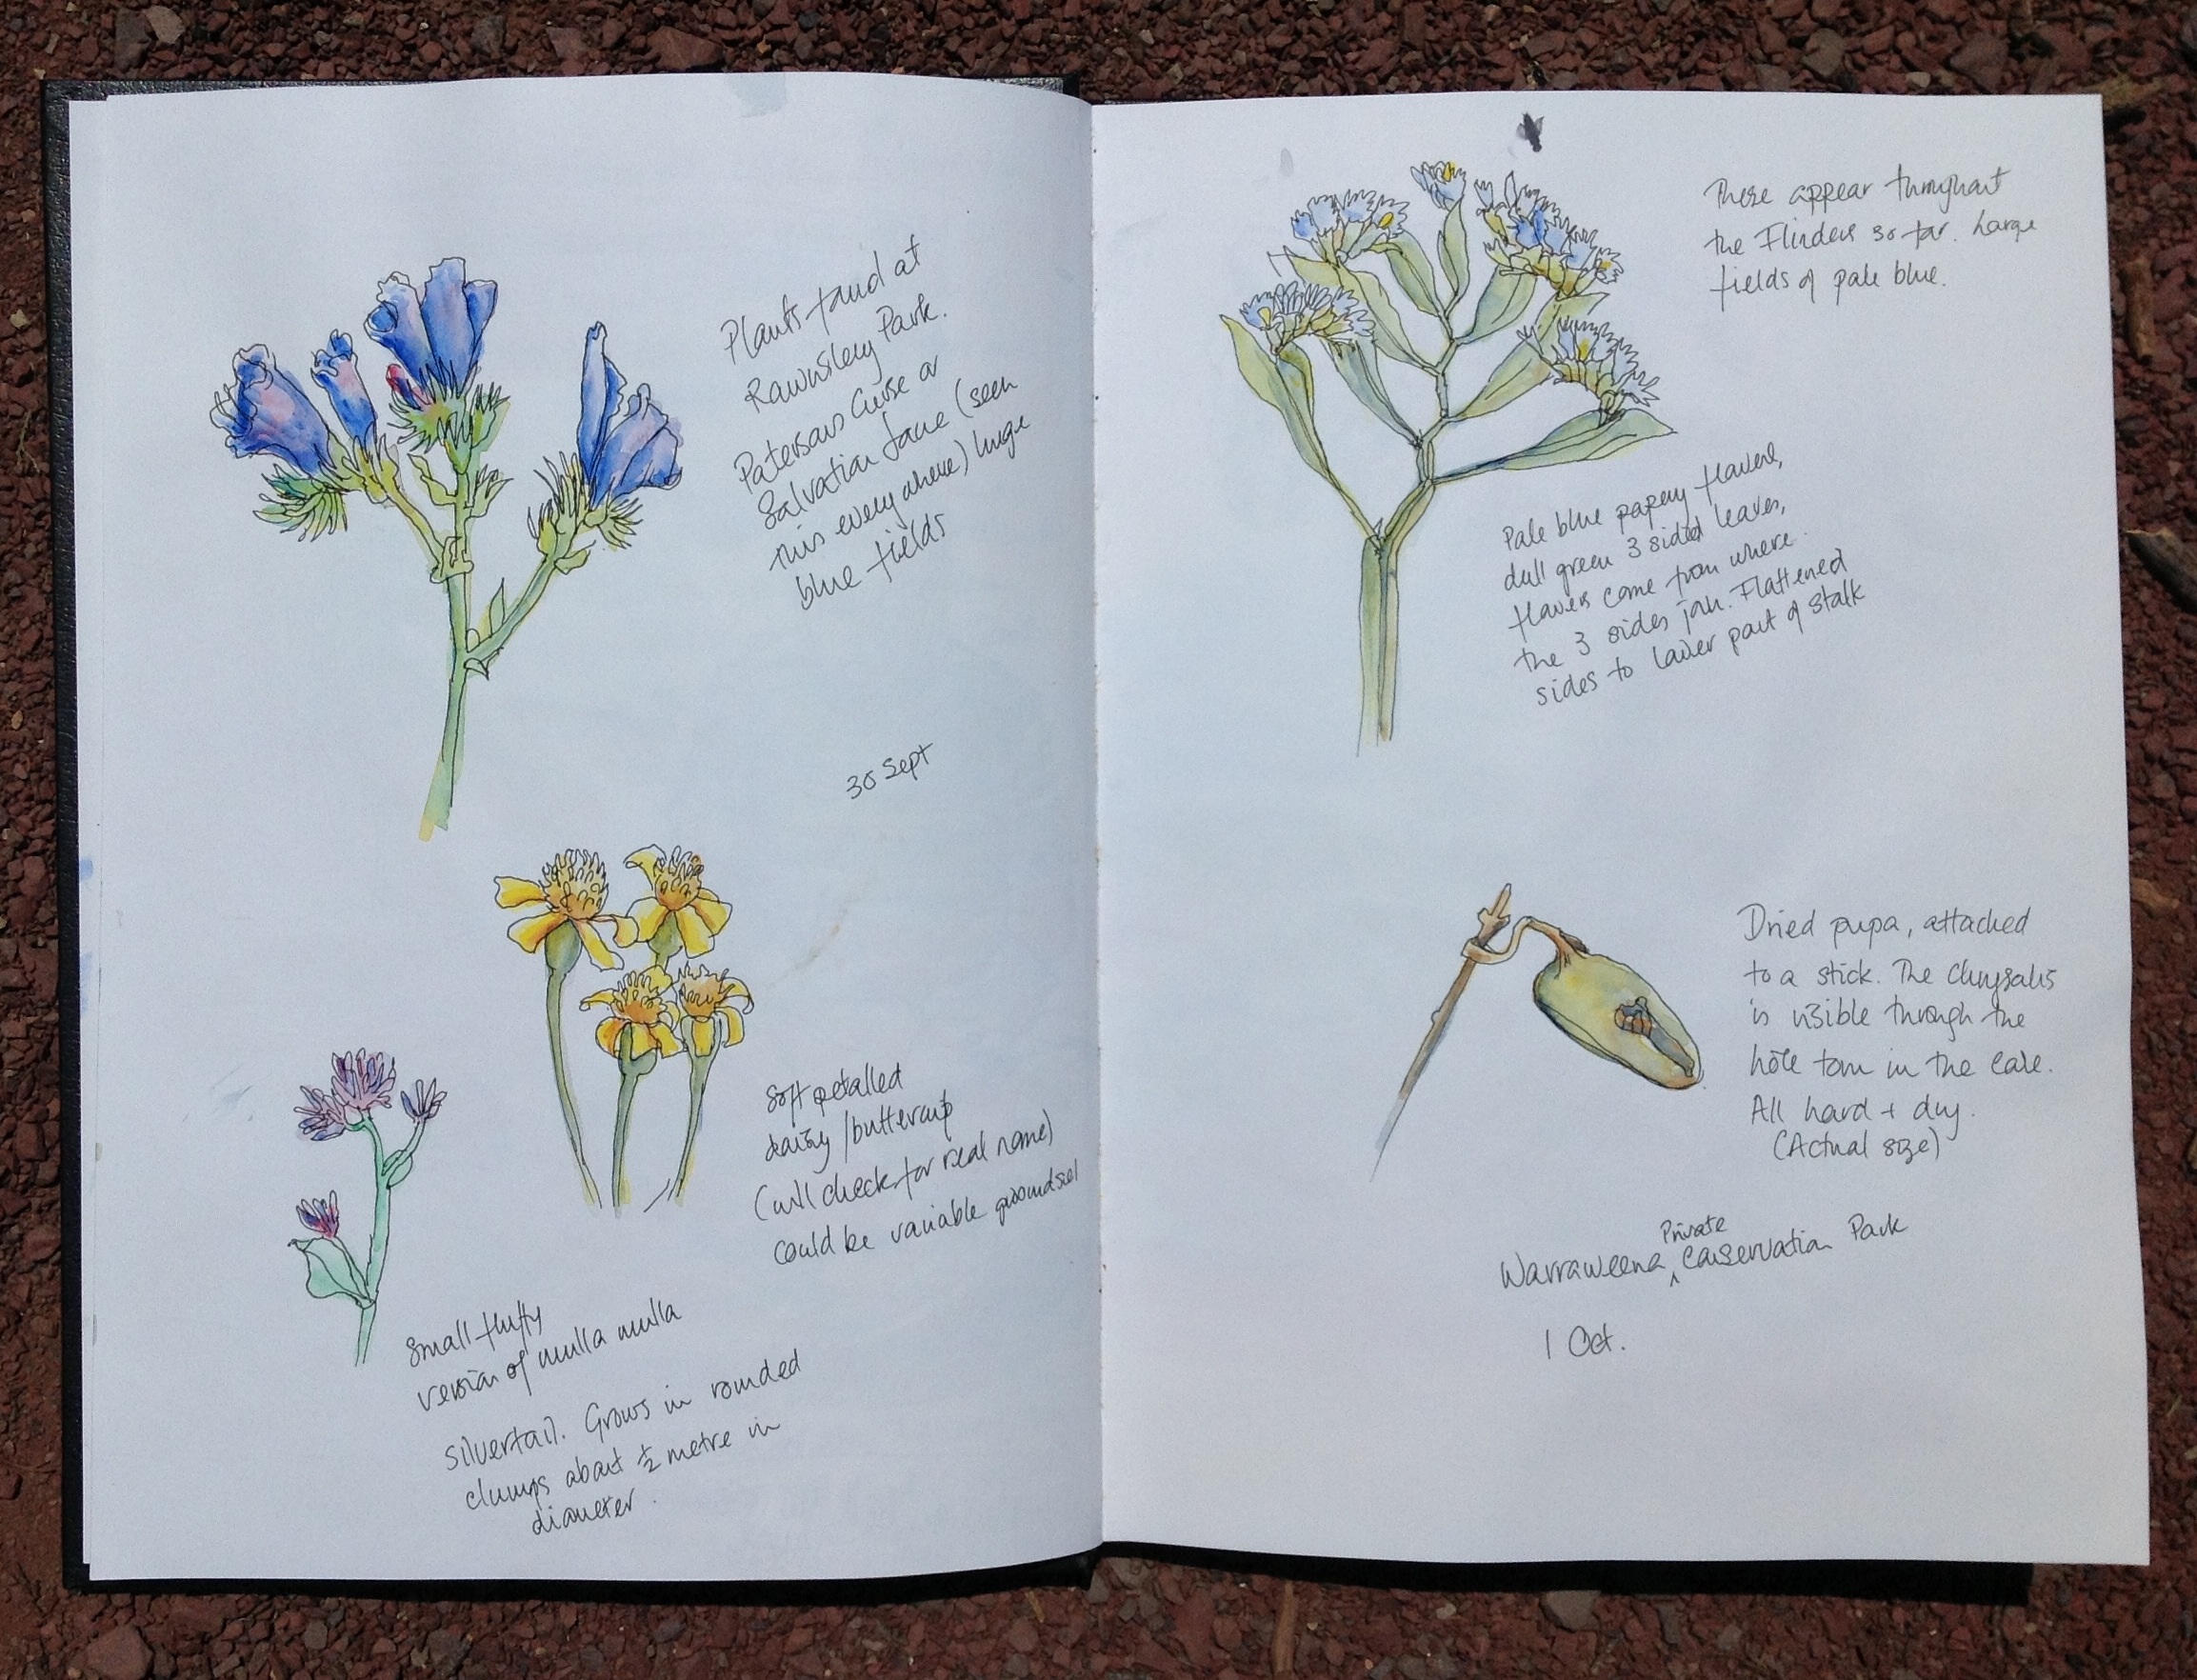 Plants found at
Rawnsley Park.
Patersons Curse or
Salvation Jane (seen
this everywhere) huge
blue fields
30 Sept
Soft petalled
daisy/buttercup
(will check for real name)
could be variable groundsel
Small fluffy
version of mulla mulla
Silvertail. Grows in rounded
clumps about ½ metre in
diameter.
These appear throughout
the Flinders so far. Large
fields of pale blue.
Pale blue papery flowers,
dull green 3 sided leaves,
flowers come from where
the 3 sides join. Flattened
sides to lower part of stalk
Dried pupa, attached
to a stick. The chrysalis
is visible through the
hole torn in the case.
All hard + dry.
(Actual size)
Warraweena Private Conservation Park
1 Oct.